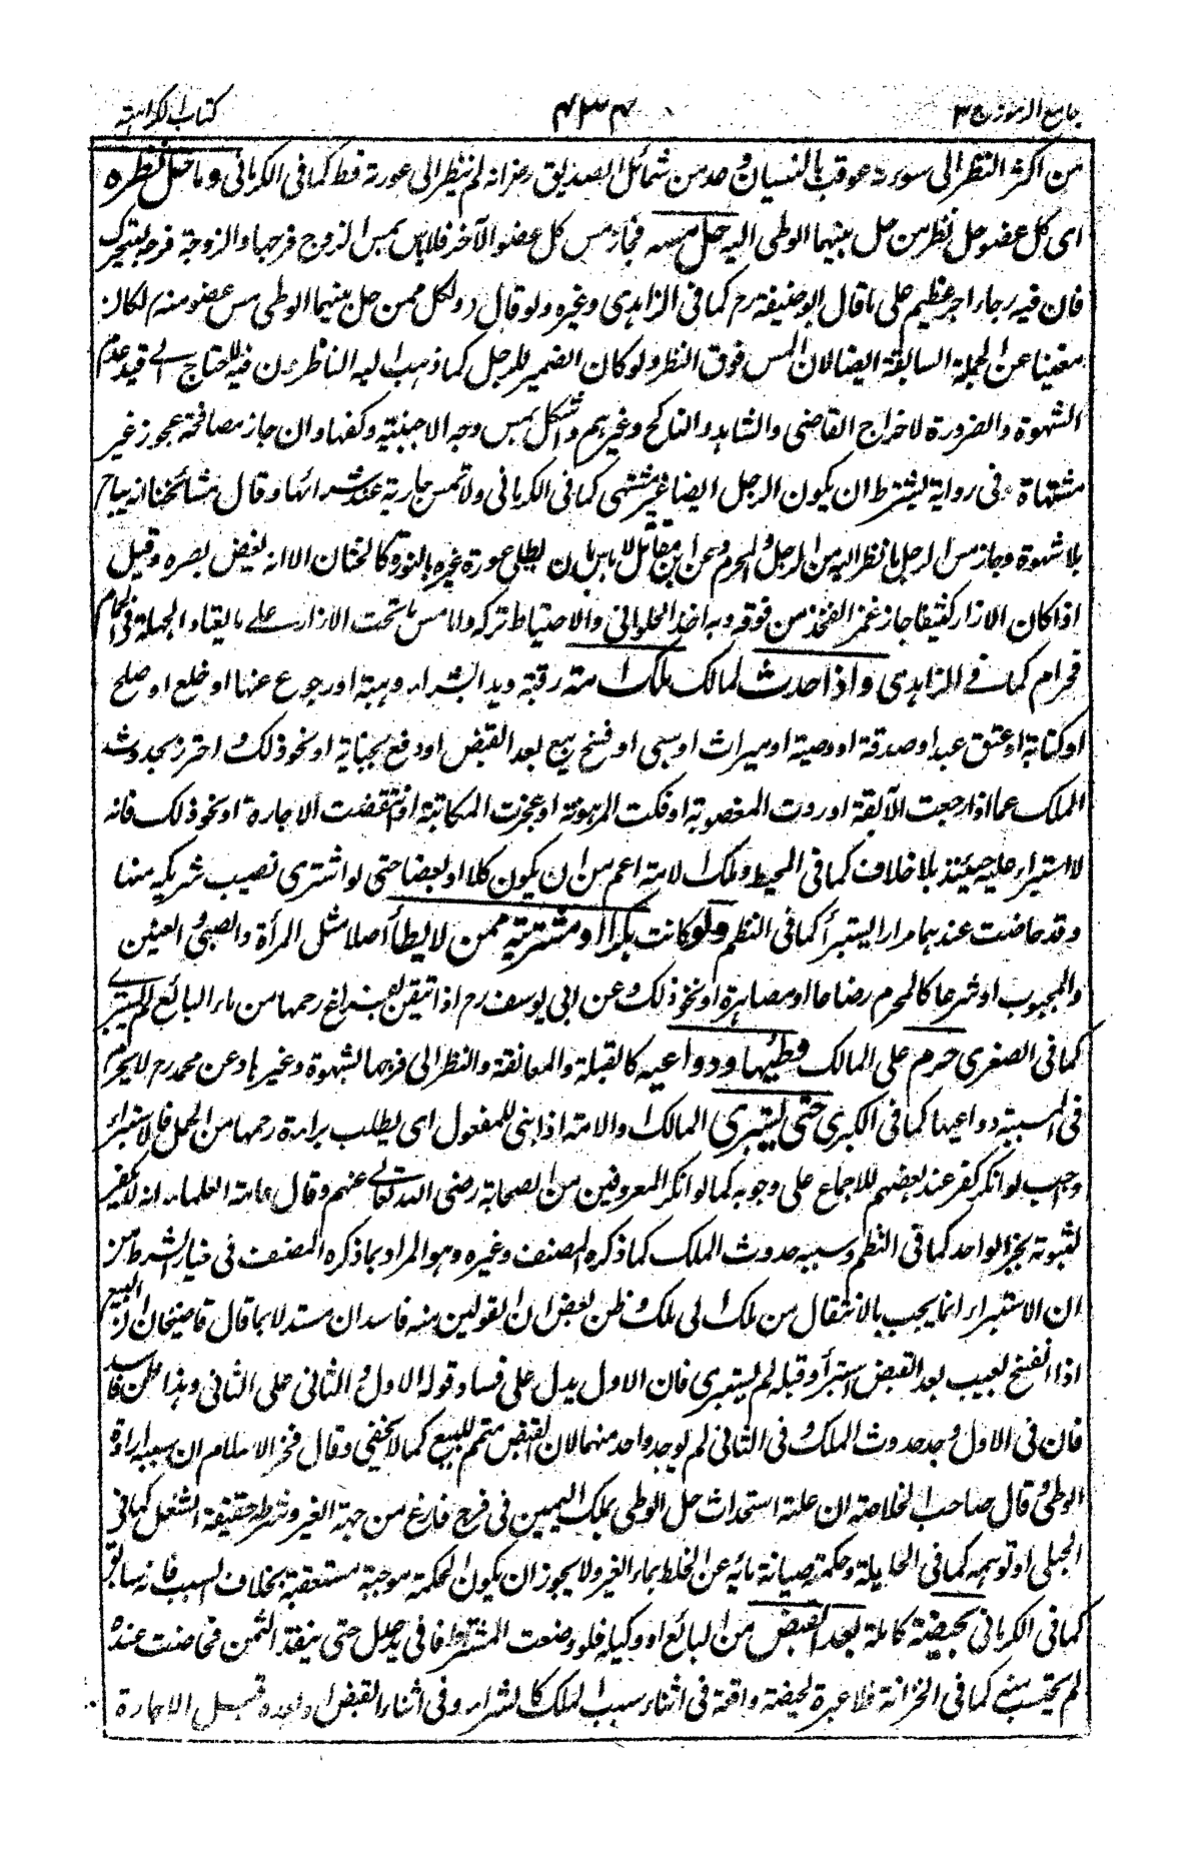 جامع الرموز ج ٣
٤٣٤
كتاب الكراهية
من اكثر النظر الى سوءته عوقب بالنسيان وعد من شمائل الصديق رض انه لم ينظر الى عورته قط كما فى الكرمانى وما حل نظره
اى كل عضو حل نظر من حل بينهما الوطى اليه حل مسه فجاز مس كل عضو الآخر فلا باس بمس الزوج فرجها والزوجة فرجه ليتحرك
فان فيه رجاء اجر عظيم على ما قال ابو حنيفة رح كما فى الزاهدى وغيره ولو قال ولكل ممن حل بينهما الوطى مس عضو منه لكان
مغنيا عن الجملة السابقة ايضا لان المس فوق النظر ولو كان الضمير للرجل كما ذهب اليه الناظرون فيه لاحتاج الى قيد عدم
الشهوة والضرورة لاخراج القاضى والشاهد والناكح وغيرهم واشكل بمس وجه الاجنبية وكفها وان جاز مصافحة عجوز غير
مشتهاة وفى رواية يشترط ان يكون الرجل ايضا غير مشتهى كما فى الكرمانى ولا تمس جارية عند شرائها وقال مشائخنا انه يباح
بلا شهوة وجاز مس الرجل ما نظر اليه من الرجل والمحرم وعن ابن مقاتل لا باس بان يطلى عورة غيره بالنورة كالختان الا انه يغض بصره وقيل
اذا كان الازار كثيفا جاز غمز الفخذ من فوقه وبه اخذ الحلوانى والاحتياط تركه ولا مس ما تحت الازار على ما يلقاه الجهلة فى الحمام
فحرام كما فى الزاهدى واذا حدث لمالك ملك امة رقبة ويدا بشراء وهبة او رجوع عنها او خلع او صلح
او كتابة او عتق عبد او صدقة او وصية او ميراث او سبى او فسخ بيع بعد القبض او دفع بجناية او نحو ذلك واحترز بحدوث
الملك عما اذا رجعت الآبقة او ردت المغصوبة او فكت المرهونة او عجزت المكاتبة او انتقضت الاجارة او نحو ذلك فانه
لا استبراء عليه حينئذ بلا خلاف كما فى المحيط وملك الامة اعم من ان يكون كلا او بعضا حتى لو اشترى نصيب شريكه منها
وقد حاضت عندهما مرارا يستبرأ كما فى النظم ولو كانت بكرا او مشترية ممن لا يطأ أصلا مثل المرأة والصبى والعنين
والمجبوب او شرعا كالمحرم رضاعا او مصاهرة او نحو ذلك وعن ابى يوسف رح اذا تيقن بفراغ رحمها من ماء البائع لم يستبرئ
كما فى الصغرى حرم على المالك وطيها ودواعيه كالقبلة والمعانقة والنظر الى فرجها بشهوة وغيرها وعن محمد رح لا يحرم
فى المسبية دواعيها كما فى الكبرى حتى يستبرى المالك والامة اذا بنى للمفعول اى يطلب براءة رحمها من الحمل فالاستبراء
واجب لو انكر كفر عند بعضهم للاجماع على وجوبه كما لو انكر المعروفين من الصحابة رضى الله تعالى عنهم وقال عامة العلماء انه لا يكفر
لثبوته بخبر الواحد كما فى النظم وسببه حدوث الملك كما ذكره المصنف وغيره وهو المراد بما ذكره المصنف فى خيار الشرط من
ان الاستبراء انما يجب بالانتقال من ملك الى ملك وظن بعض ان القولين منه فاسدان مستدلا بما قال قاضيخان ان البيع
اذا انفسخ لعيب بعد القبض استبرأ وقبله لم يستبرى فان الاول يدل على فساد قوله الاول والثانى على الثانى وهذا ظن فاسد
فان فى الاول وجد حدوث الملك وفى الثانى لم يوجد واحد منهما لان القبض متمم للبيع كما لا يخفى وقال فخر الاسلام ان سببه ارادة
الوطى وقال صاحب الخلاصة ان علته استحداث حل الوطى بملك اليمين فى فرج فارغ من جهة الغير وشرطه حقيقة الشغل كما فى
الحبلى او توهمه كما فى الحايلة وحكمته صيانة مائه عن الخلط بماء الغير ولا يجوز ان يكون الحكمة موجبة مستعقبة بخلاف السبب فانه سابق
كما فى الكرمانى بحيضة كاملة بعد القبض من البائع او وكيله فلو وضعت المشتراة فى يد عدل حتى ينقد الثمن فحاضت عنده
لم يحتسب كما فى الخزانة فلا عبرة لحيضة واقعة فى اثناء سبب الملك كالشراء وفى اثناء القبض او بعده قبل الاجازة